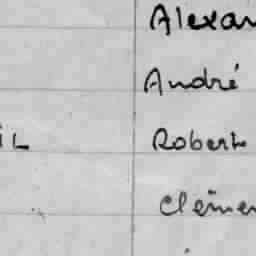 Alexan
André
IL Robert
Clémen